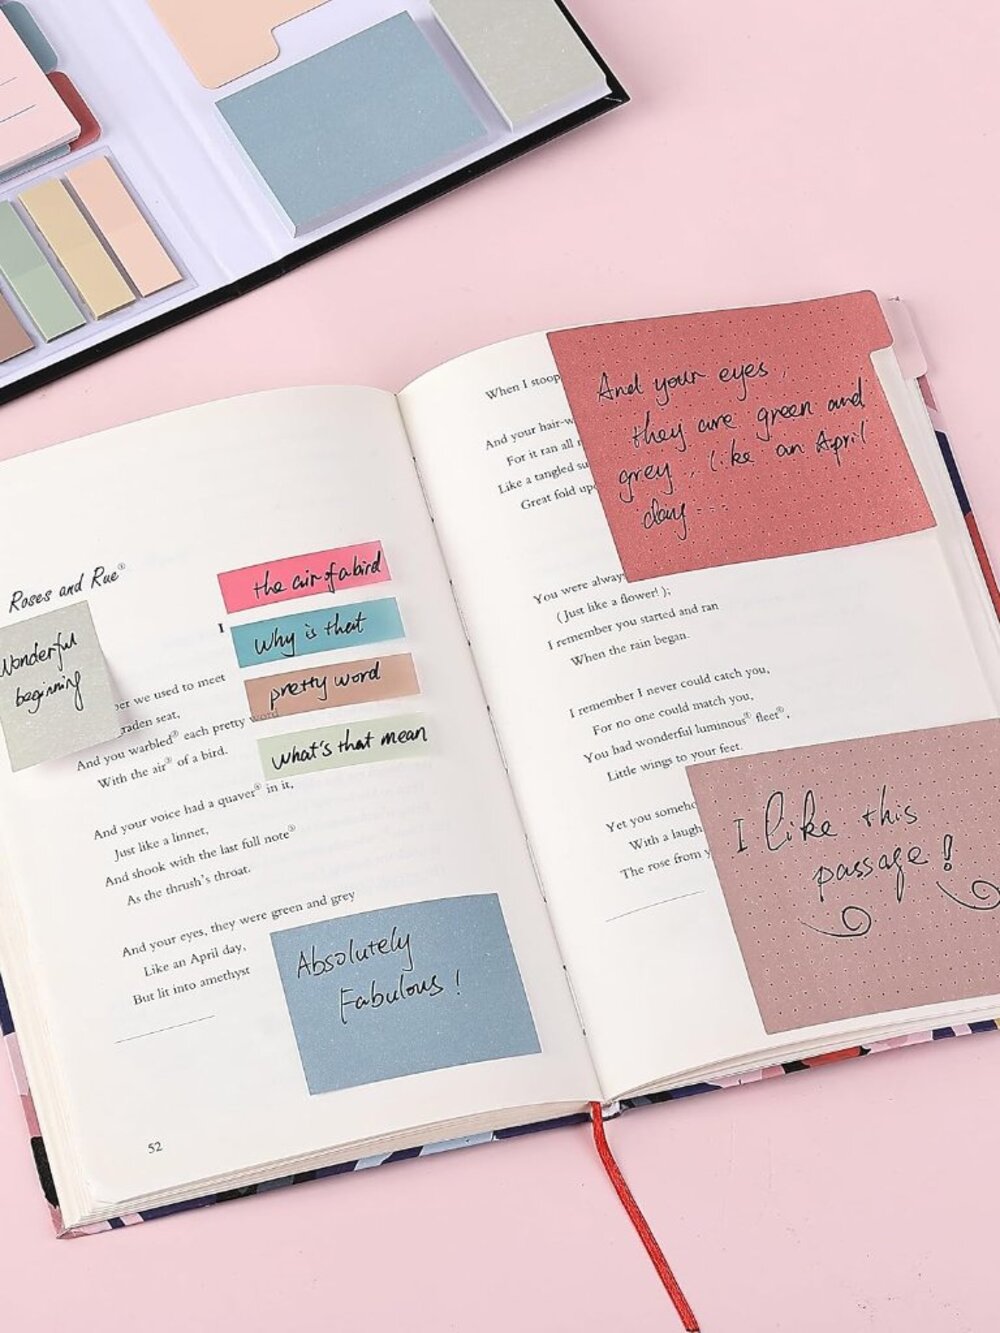 Roses and Rue①
Wonderful
beginning
I
the air of a bird
Why is that
pretty word
what's that mean
ber we used to meet
raden seat,
And you warbled② each pretty word
With the air③ of a bird.
And your voice had a quaver④ in it,
Just like a linnet,
And shook with the last full note⑤
As the thrush's throat.
And your eyes, they were green and grey
Like an April day,
But lit into amethyst
Absolutely
Fabulous!
52
When I stoop
And your hair-w
For it ran all
Like a tangled su
Great fold up
And your eyes,
they are green and
grey.. like an April
day...
You were alway
(Just like a flower!);
I remember you started and ran
When the rain began.
I remember I never could catch you,
For no one could match you,
You had wonderful luminous fleet,
Little wings to your feet.
Yet you someho
With a laugh
The rose from y
I like this
passage!